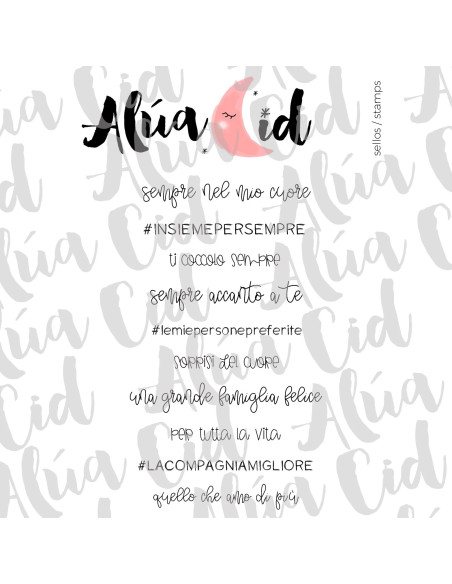 Alúa Cid
sellos / stamps
sempre nel mio cuore
#INSIEMEPERSEMPRE
ti coccolo sempre
sempre accanto a te
#lemiepersonepreferite
sorrisi del cuore
una grande famiglia felice
per tutta la vita
#LACOMPAGNIAMIGLIORE
quello che amo di più